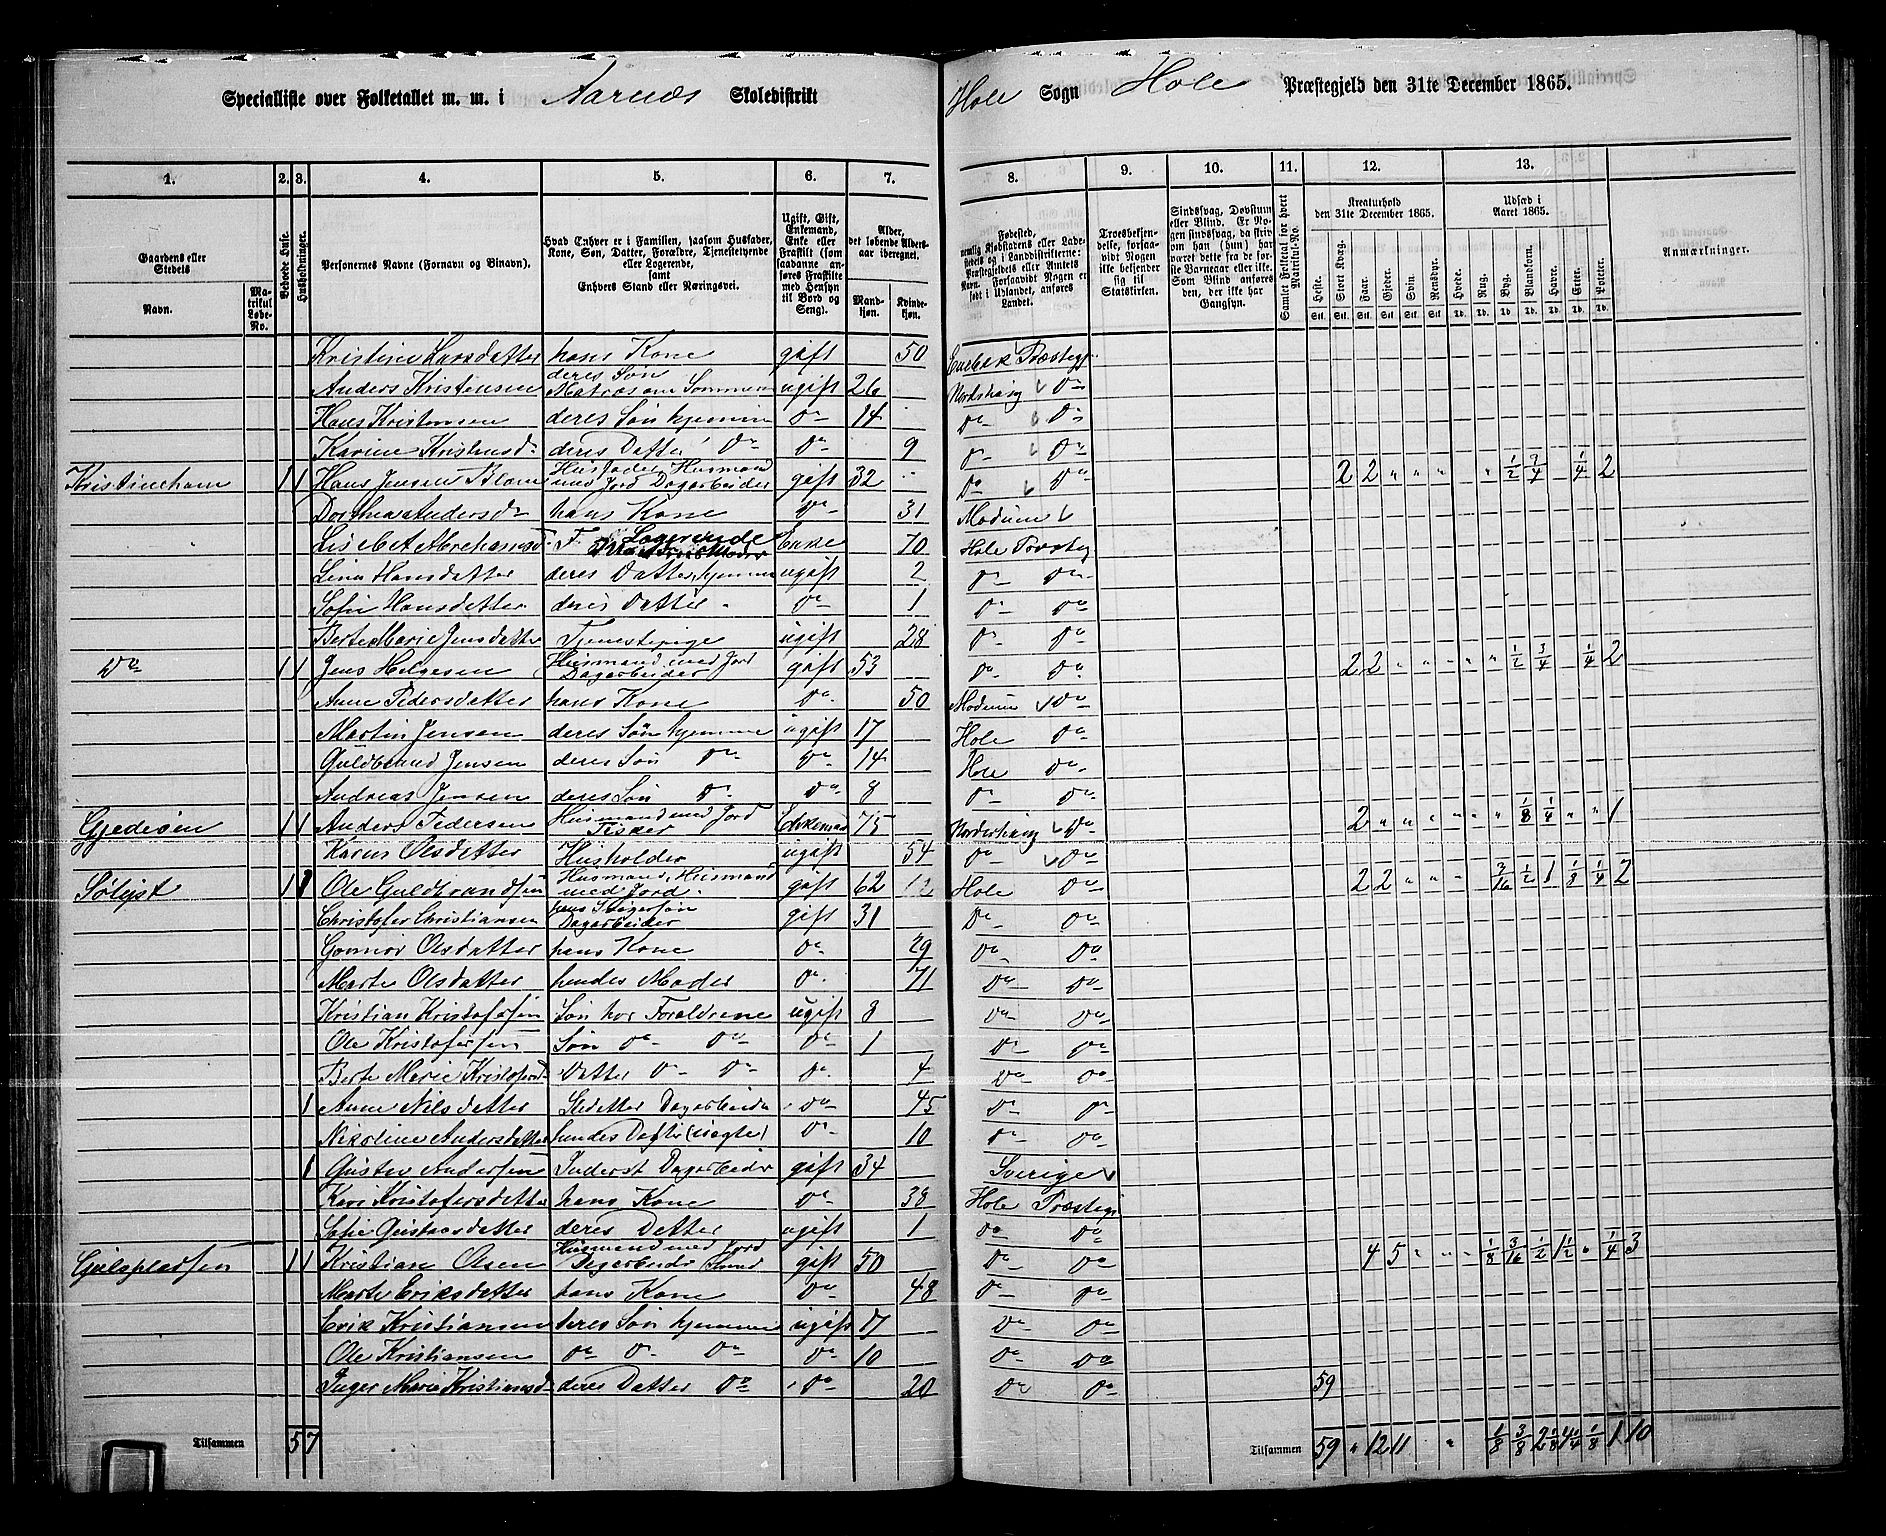 Specialliste over Folketallet m. m. i Aarnæs Skoledistrikt
Hole Sogn Hole Præstegjeld den 31te December 1865.
1. 2. 3. 4. 5. 6. 7. 8. 9. 10. 11. 12. 13.
Gaardens eller Stedets
Navn.
Matrikul Løbe-No.
Beboede Huse.
Husholdninger.
Personernes Navne (Fornavn og Binavn).
Hvad Enhver er i Familien, saasom Husfader, Kone, Søn, Datter, Forældre, Tjenestetyende eller Logerende, samt Enhvers Stand eller Næringsvei.
Ugift, Gift, Enkemand, Enke eller Fraskilt (som saadanne anføres Fraskilte med Hensyn til Bord og Seng).
Alder, det løbende Aldersaar iberegnet.
Mandkjøn. Kvindekjøn.
Troesbekjendelse, forsaavidt Nogen ikke bekjender sig til Statskirken.
Sindssvag, Døvstum eller Blind. Er Nogen sindssvag, da skriv om han (hun) har været dette siden før Barneaar eller ikke. Som Blind anføres den, der ikke har Gangsyn.
Samlet Folketal for hvert Matrikul-No.
Kreaturhold den 31te December 1865.
Heste. Stort Kvæg. Faar. Gjeder. Svin. Rensdyr.
Udsæd i Aaret 1865.
Hvede. Rug. Byg. Blandkorn. Havre. Erter. Poteter.
Anmærkninger.
Kristine Larsdatter hans Kone gift 50 Enebak Præstegj.
Anders Kristensen deres Søn Matros om Sommeren ugift 26 Do
Hans Kristensen deres Søn hjemme Do 14 Do Do
Karine Kristensd deres Datter Do Do 9 Do Do
Kristineham 1 1 Hans Jensen Husfader Husmand med Jord Dagarbeider gift 32 Do Do 2 2 " " " " 1/2 3/4 1/4 2
Dorthea Andersd hans Kone Do 31 Modum
Lisebet Abrahamsd F. Logerende Enke 70 Hole Præsteg
Lina Hansdatter deres Datter hjemme ugift 2 Do Do
Sofie Hansdatter deres Datter Do 1 Do Do
Berte Marie Jensdatter Tjenestepige ugift 28 Do Do
Do 1 1 Jens Helgesen Husmand med Jord Dagarbeider gift 53 Do Do 2 2 " " " " " 1/2 3/4 1/4 2
Anne Pedersdatter hans Kone Do 50 Modum Do
Martin Jensen deres Søn hjemme ugift 17 Hole Do
Guldbrand Jensen deres Søn Do Do 14 Hole Do
Andreas Jensen deres Søn Do Do 8 Do Do
Gjedeøen 1 1 Anders Pedersen Husmand med Jord Fisker Enkemand 75 Do 2 " " " " " " 1/8 1/4 " " 1
Karen Olsdatter Husholder ugift 54 Do Do
1 1 Ole Guldbrandsen Husmand, Husmand med Jord gift 62 Hole Do 2 2 " " " 3/16 1/2 1 1/8 1/4 2
Christofer Christiansen hans Svigersøn Dagarbeider gift 31 Do Do
Gonnor Olsdatter hans Kone Do 29 Do Do
Marte Olsdatter hendes Moder Do 71 Do Do
Kristian Kristofersen Søn hos Forældrene ugift 3 Do Do
Ole Kristofersen Søn Do Do Do 1 Do Do
Berte Marie Kristofersd Datter Do Do Do 4 Do Do
1 Anne Nilsdatter Dagarbeider Do 45 Do Do
Nikoline Andersdatter hendes Datter (uægte) Do 10 Do Do
1 Gustav Andersen Inderst Dagarbeider gift 34 Sverige
Kari Kristofersdatter hans Kone Do 38 Hole Præstegj
Sofie Gustavsdatter deres Datter ugift 1 Do Do
1 1 Kristian Olsen Husmand med Jord Dagarbeider Smed gift 50 Do Do 4 5 " " " 1/8 3/16 1/2 1 1/2 " 1/4 3
Marte Eriksdatter hans Kone Do 48 Do Do
Erik Kristiansen deres Søn hjemme ugift 17 Do Do
Ole Kristiansen Do Do Do Do 10 Do Do
Inger Marie Kristiansd deres Datter Do Do 20 Do Do 59
Tilsammen 5 7
Tilsammen 59 " 12 11 " 1/8 3/8